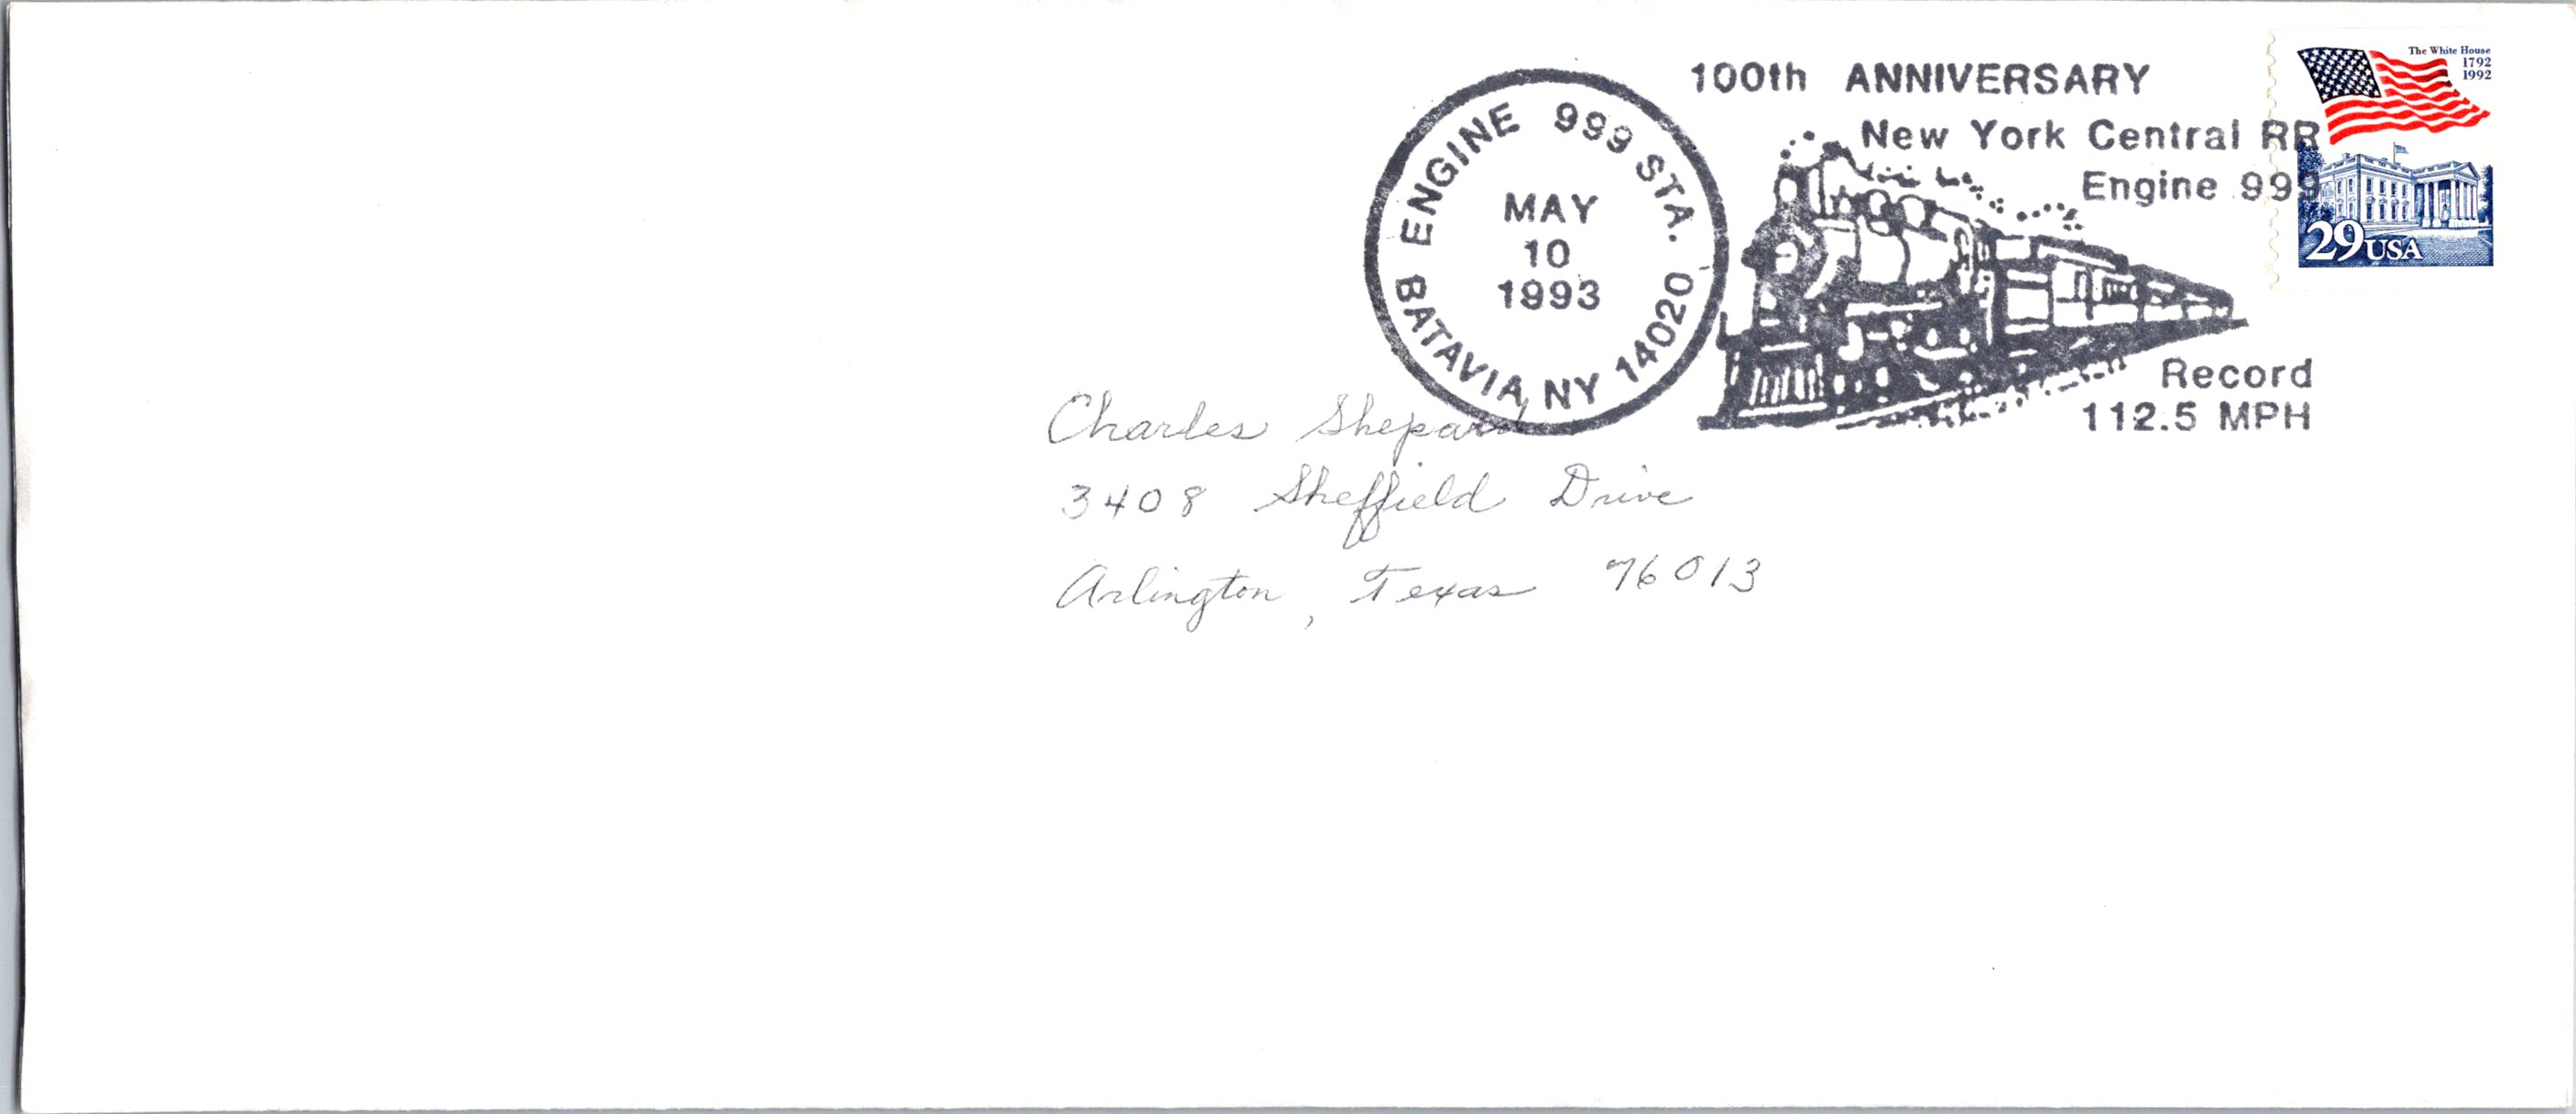 100th ANNIVERSARY
New York Central RR
Engine 999
Record
112.5 MPH
ENGINE 999 STA.
MAY
10
1993
BATAVIA, NY 14020
The White House
1792
1992
29USA
Charles Shepard
3408 Sheffield Drive
Arlington, Texas 76013